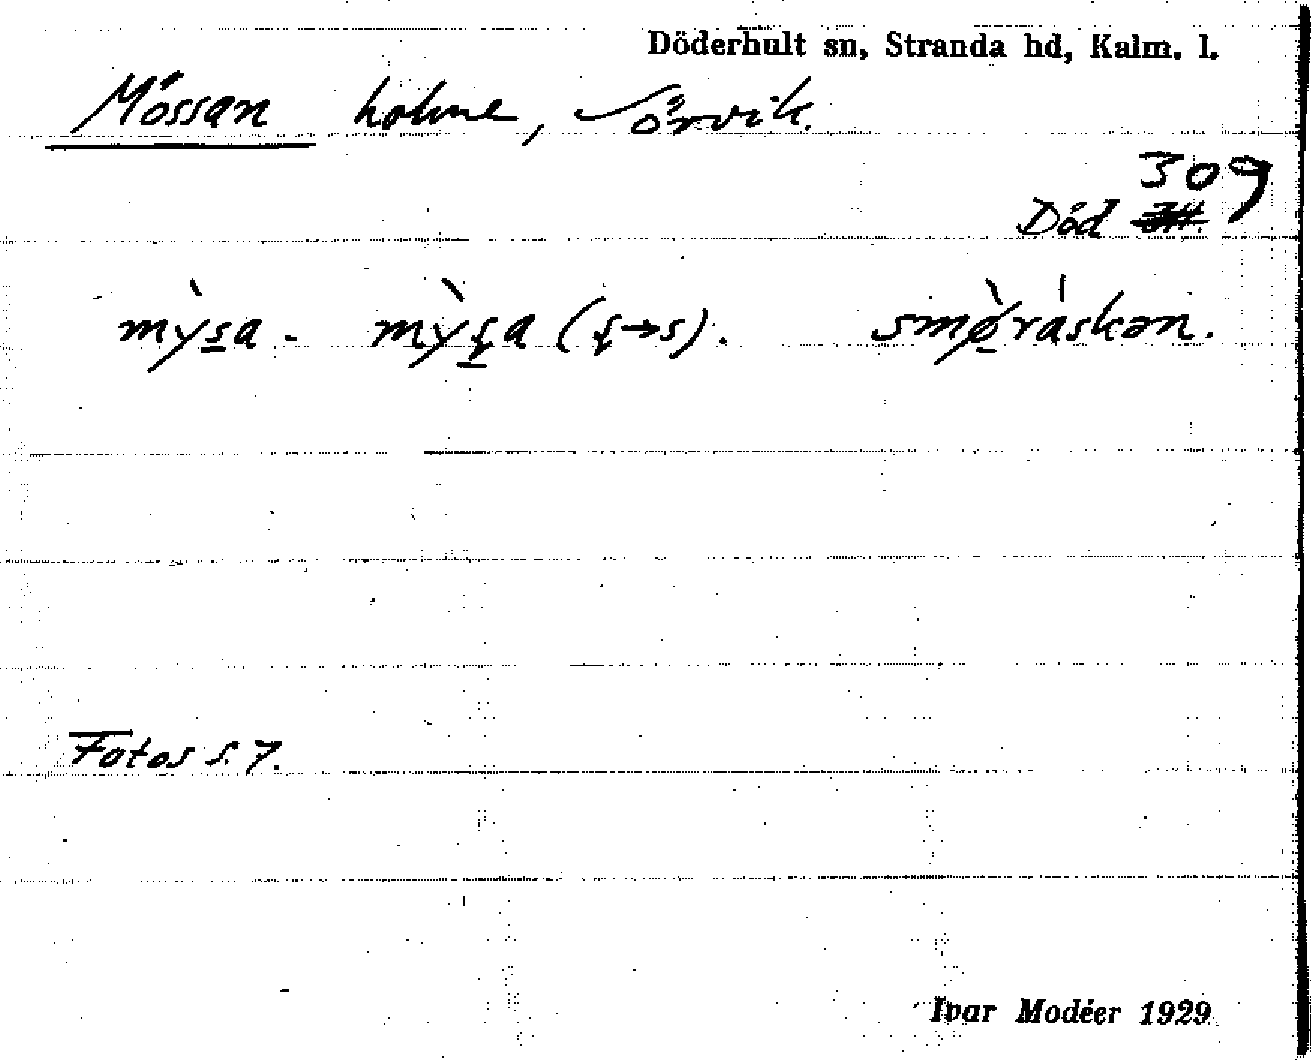 Döderhult sn, Stranda hd, Kalm. l.
Mössan holme, Sörvik.
309
Död
mỳs̲a - mỳş̲a (ş→s). smø̲̀ráskən.
Fotos s. 7.
Ivar Modéer 1929